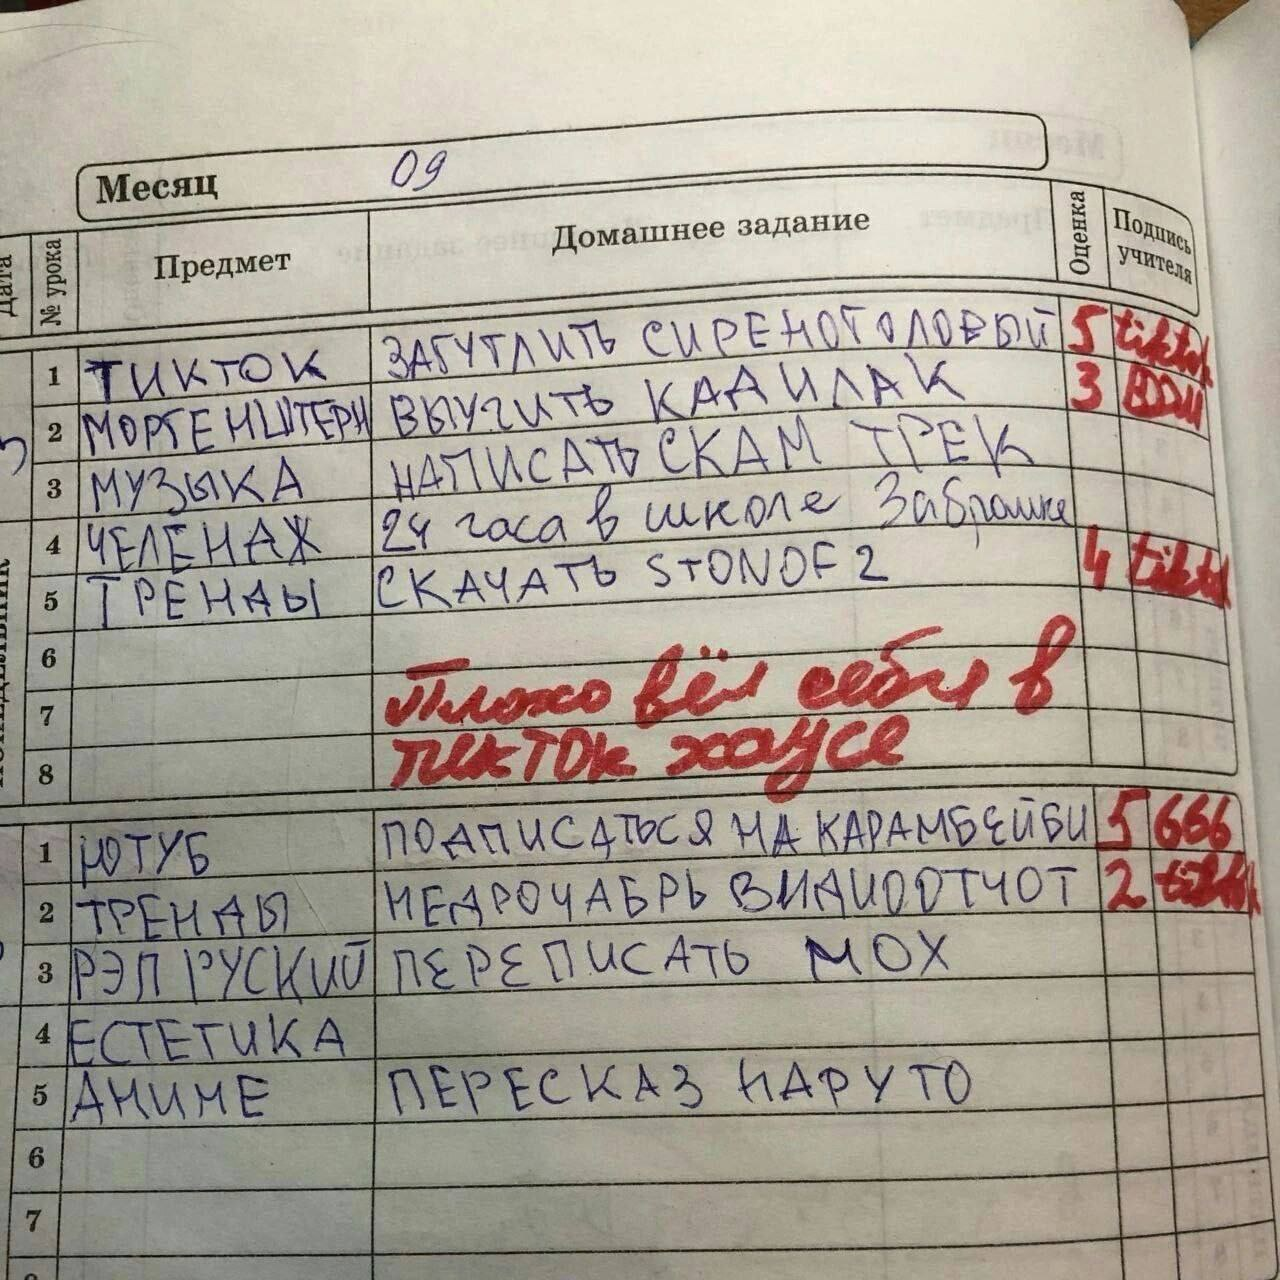 Месяц 09
Дата № урока Предмет Домашнее задание Оценка Подпись учителя
1 ТИКТОК ЗАГУГЛИТЬ СИРЕНОГОЛОВЫЙ 5 tiktok
2 МОРГЕНШТЕРН ВЫУЧИТЬ КАДИЛАК 3
3 МУЗЫКА НАПИСАТЬ СКАМ ТРЕК
4 ЧЕЛЕНАЖ 24 часа в школе Заброшке
5 ТРЕНДЫ СКАЧАТЬ STONOF 2 4 tiktok
6
7 Плохо вёл себя в
8 тик ТОк хаусе
ПОНЕДЕЛЬНИК
1 ЮТУБ ПОДПИСАТЬСЯ НА КАРАМБЕЙБИ 5 666
2 ТРЕНДЫ НЕДРОЧАБРЬ ВИДИООТЧОТ 2 tiktok
3 РЭП РУСКИЙ ПЕРЕПИСАТЬ МОХ
4 ЕСТЕТИКА
5 АНИМЕ ПЕРЕСКАЗ НАРУТО
6
7
8